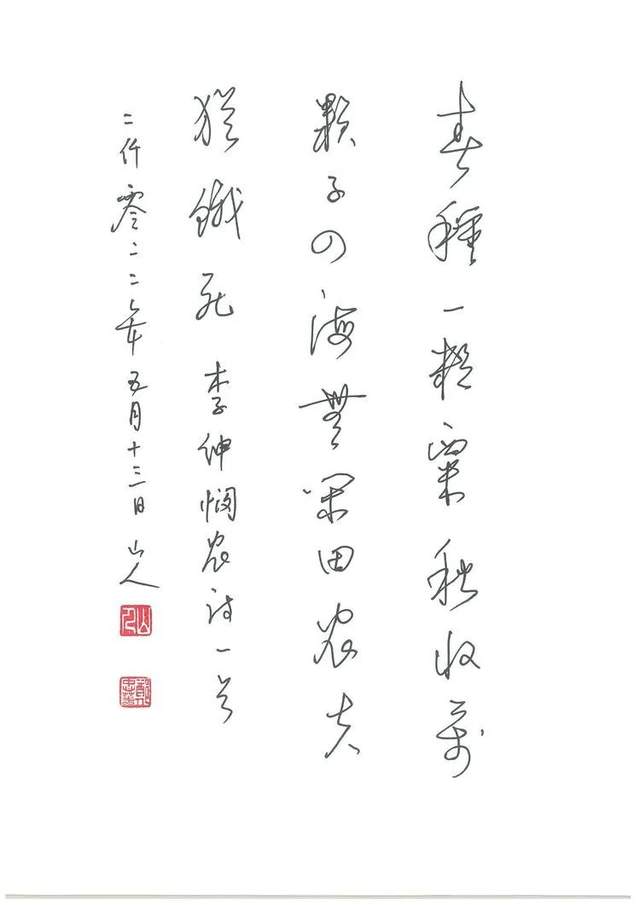 春種一粒粟秋收萬
顆子四海無閑田農夫
猶餓死 李紳憫農詩一首
二仟零二二年五月十三日 山人
山人